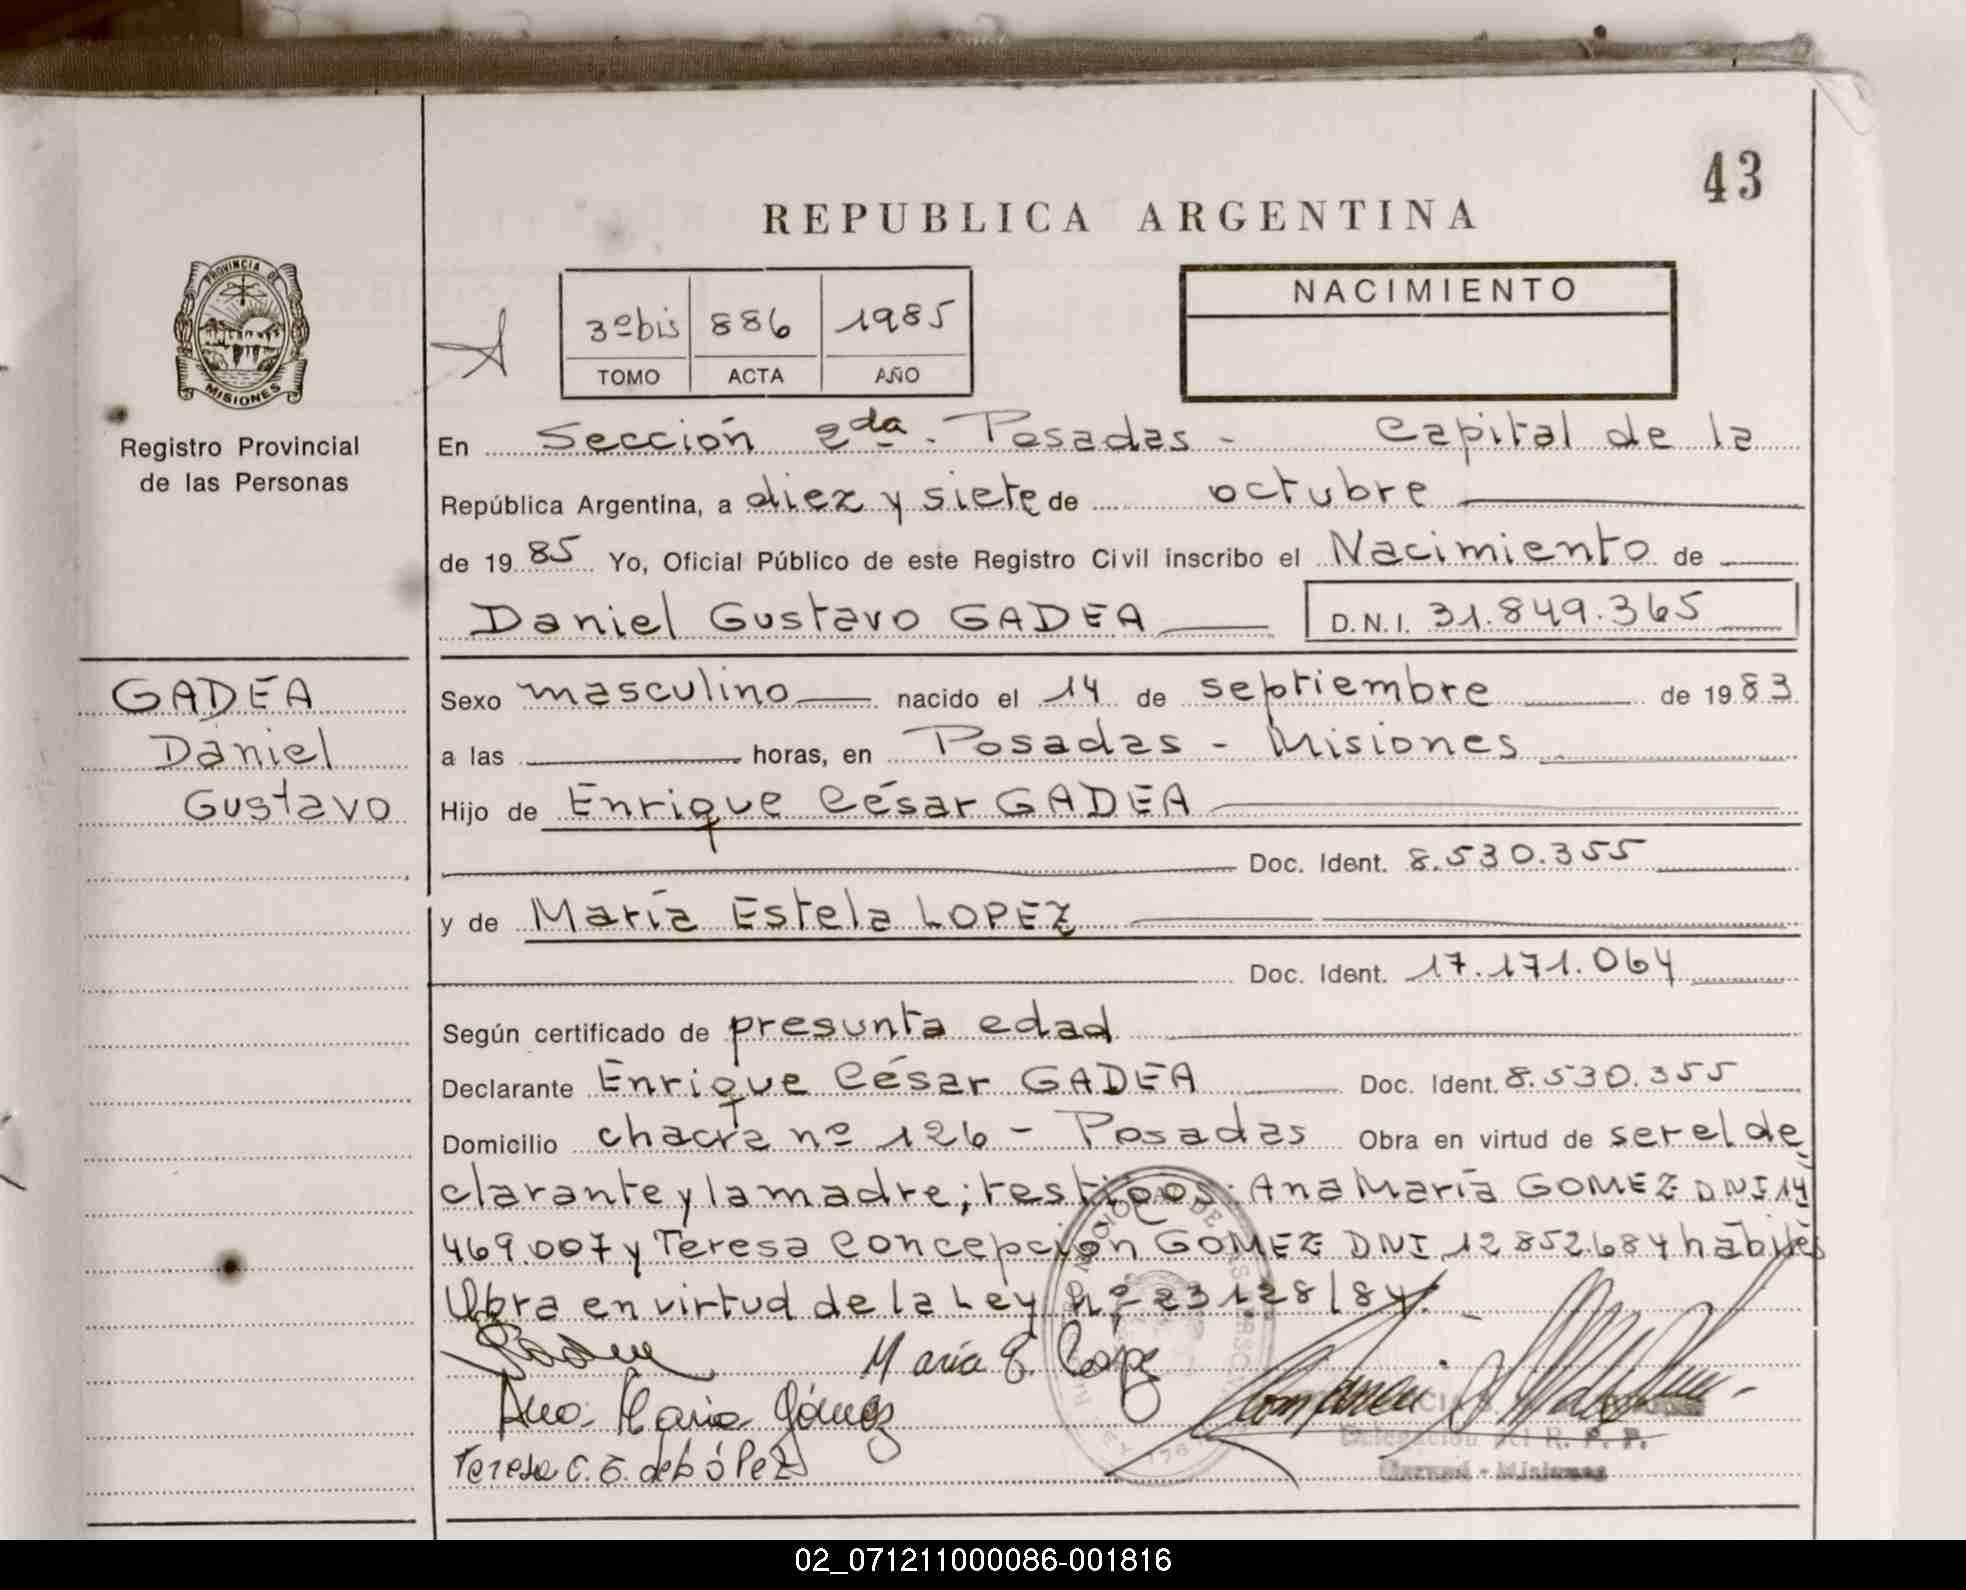 43
REPUBLICA ARGENTINA
PROVINCIA DE
MISIONES
Registro Provincial
de las Personas
3º bis 886 1985
TOMO ACTA AÑO
NACIMIENTO
En Sección 2da. Posadas - Capital de la
República Argentina, a diez y siete de octubre
de 1985 Yo, Oficial Público de este Registro Civil inscribo el Nacimiento de
Daniel Gustavo GADEA D.N.I. 31.849.365
GADEA
Daniel
Gustavo
Sexo masculino nacido el 14 de septiembre de 1983
a las horas, en Posadas - Misiones
Hijo de Enrique César GADEA
Doc. Ident. 8.530.355
y de María Estela LOPEZ
Doc. Ident. 17.171.064
Según certificado de presunta edad
Declarante Enrique César GADEA Doc. Ident. 8.530.355
Domicilio chacra nº 126 - Posadas Obra en virtud de ser el de
clarante y la madre; testigos: Ana María GOMEZ DNI 14
469.007 y Teresa Concepción GOMEZ DNI 12852.684 hábiles
Obra en virtud de la Ley nº 23128/84. -
María E. Lopez
Ana María Gómez
Teresa C. G. de López
Delegación del R. P. P.
02_071211000086-001816